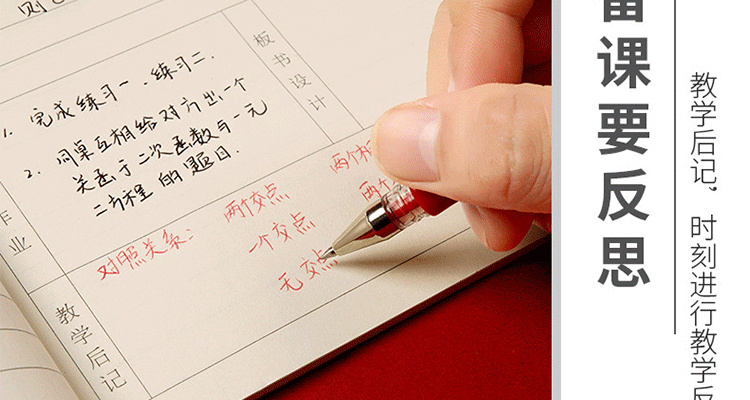 则
板书设计
1. 完成练习一、练习二.
2. 同桌互相给对方出一个
关于二次函数与一元
二方程 的题目.
作业
对照关系: 两个交点 两个相
一个交点 两个
无交点
教学后记
备课要反思
教学后记，时刻进行教学反